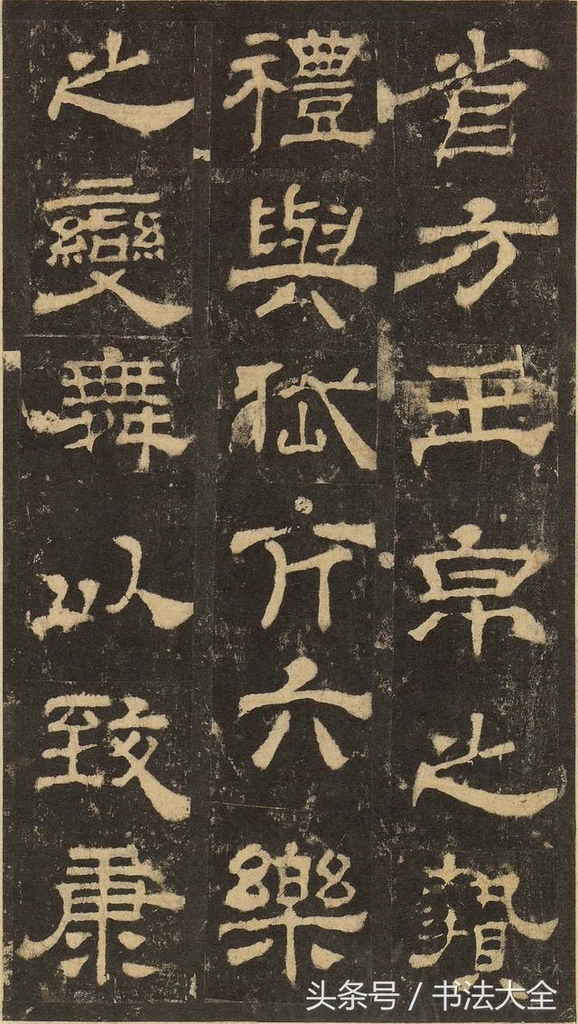 省方玉帛之贄
禮與岱亢六樂
之變舞以致康
头条号 / 书法大全